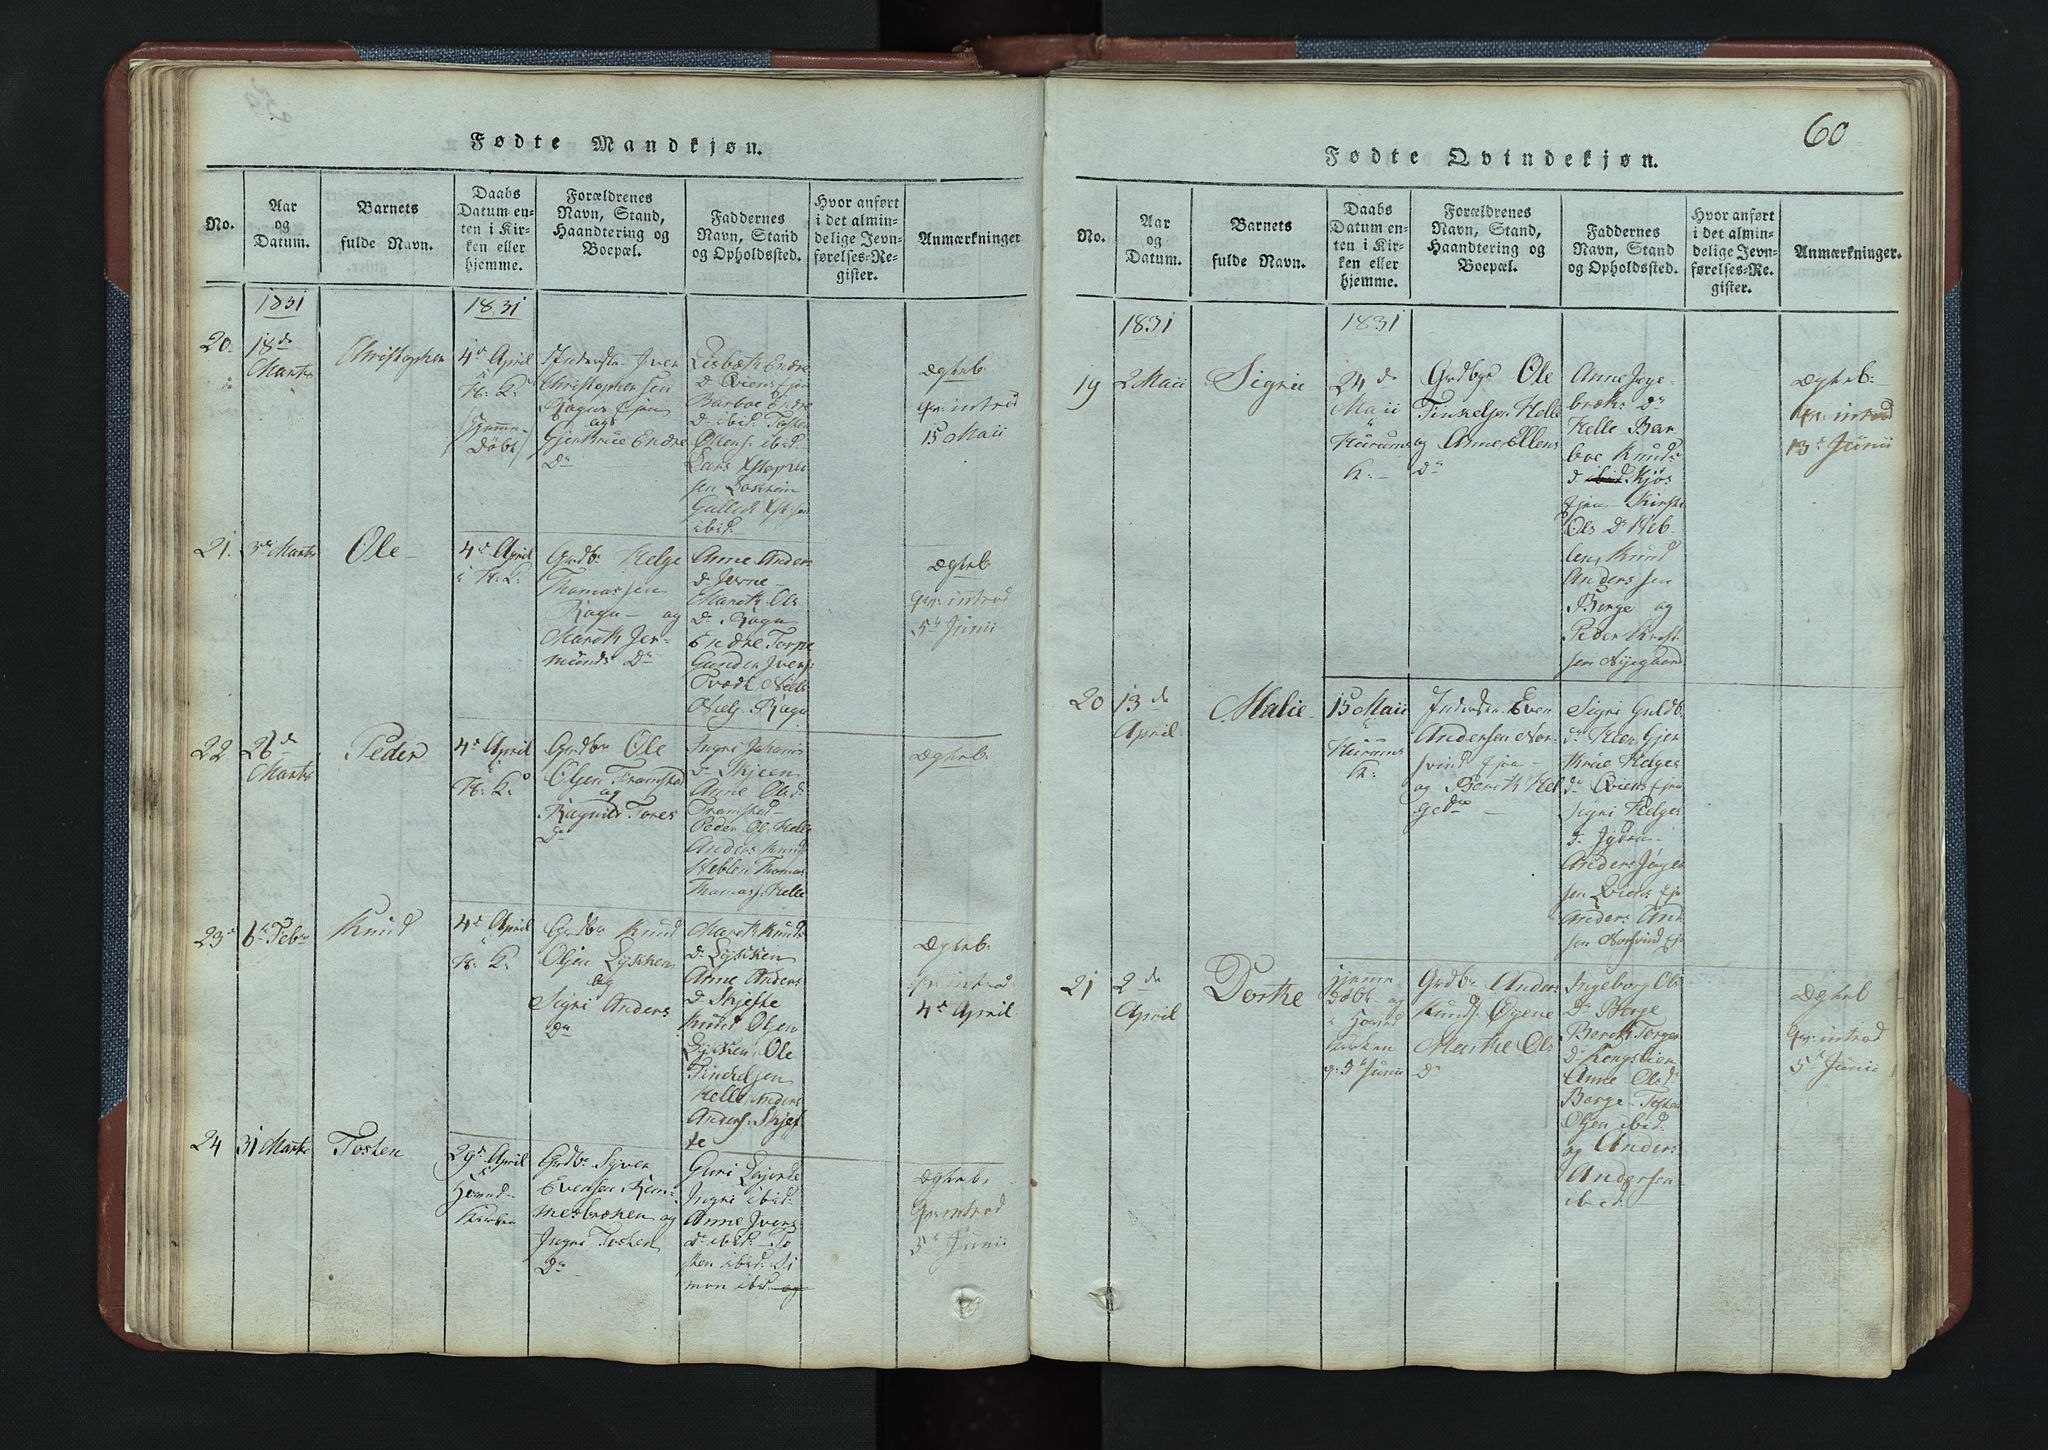 60
Fødte Mandkjøn.
No.
Aar
og
Datum.
Barnets
fulde Navn.
Daabs
Datum en-
ten i Kir-
ken eller
hjemme.
Forældrenes
Navn, Stand,
Haandtering og
Boepæl.
Faddernes
Navn, Stand
og Opholdssted.
Hvor anført
i det almin-
delige Jevn-
førelses-Re-
gister.
Anmærkninger
1831
1831
20.
18de
Marts
Christopher
4de April
i
H: K:
Hjemme
Døbt
Inderst Iver
Christophersen
Ragns Ejen
og
Gjertrue Endre
Dr
Lisbæth Endre
D. Qviens Ejen
Barboe Endre
Dr ibid. Tosten
Ostens. ibid.
Lars
sen
Gulleck
ibid.
Ægteb
qv: introd
15 Maii
21.
3de Marts
Ole
4de April
i H: K:
Grdbr Helge
Thomassen
Ragn og
Mareth Jer-
munds Dr
Anne Anders
d.
Mareth Ols
D. Ragn
Endre Torpe
Gunder Ivers:
Niels
Ragn
Ægteb
qv: introd
5te Junii
22
26de
Marts
Peder
4de April
i
H: K:
Grdbr Ole
Olsen Framstad
og
Ragnild Tores
Dr
Ingri Johanis
D. Skjeen
Anne Olsd.
Framstad
Peder Ol. Helle
Anders Knuds
Heblen Thomas
Thomass. Helle
Ægteb
23
6te Febr
Knud
4de April
i
H: K:
Grdbr Knud
Olsen Lykken
og
Sigri Anders
Dr
Mareth Knuds
D. Lykken
Anne Anders
D. Skjeffe
Knud Olsen
Lykken, Ole
Tinkelsen
Helle, Anders
Anders. Skjef
fe
Ægteb.
qv: introd
4de April
24
31 Marts
Tosten
29de April
i
Hoved-
Kirken
Grdbr Syver
Evensen Rem-
mesbraaten og
Ingri Tosten
Dr
Guri
Ingri ibid.
Anne Ivers
Dr ibid. To
sten ibid. Si
mon ibid. og
Ægteb.
qv: introd
5te Junii
Fødte Qvindekjøn.
No.
Aar
og
Datum.
Barnets
fulde Navn.
Daabs
Datum en-
ten i Kir-
ken eller
hjemme.
Forældrenes
Navn, Stand,
Haandtering og
Boepæl.
Faddernes
Navn, Stand
og Opholdssted.
Hvor anført
i det almin-
delige Jevn-
førelses-Re-
gister.
Anmærkninger.
1831
1831
19
2 Maii
Sigrie
24de
Maii
i
Hurums
K:
Grdbr Ole
Tinkelsen Helle
og Anne Ellens
Dr
Anne Inge-
bræks Dr
Helle Bar
boe Knuds
d ibid Kjøs
Ejen Kirsti
Ols Dr Heb
len, Knud
Anderssen
Berge og
Peder Knud
sen Nyegaard
Ægteb:
qv: introd
13de Junii
20
13de
April
Malie
15 Maii
i
Hurums
K:
Inderster Even
Andersen Nor-
svind Ejen
og Bereth Hel
ge Dr
Sigri Guldb:
Dr Gjer
true Helges
Dr Qviens Ejen
Sigri Helges
d.
Anders Jørgen
sen Qviens Ejen
Anders And
sen Norsvind Ejen
21
2de
April
Dorthe
Hjemme
Døbt og
i Hoved
Kirken
5te Junii
Grdbr Anders
Knuds. Øyene
Marthe Ols
Dr
Ingeborg Ols
Dr Berge
Bereth Torger
Dr Kongslien
Anne Olsdr
Berge Tosten
Olsen ibid.
og Anders
Andersen
ibid.
Ægteb
qv: introd
5te Junii